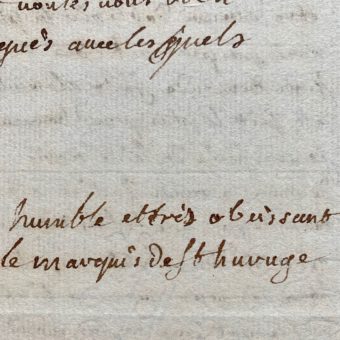 voules vous bien
avec les quels
humble et tres obeissant
le marquis de st huruge